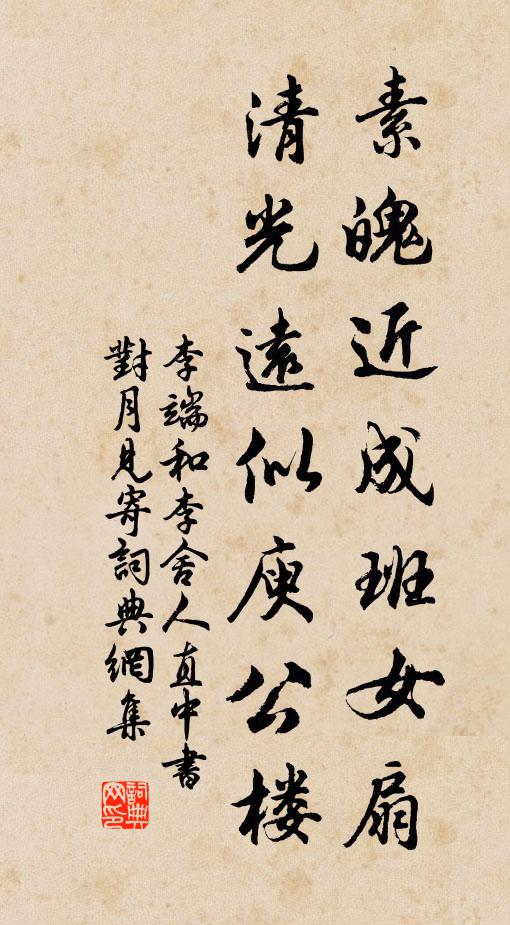 素魄近成班女扇
清光遠似庾公楼
李端和李舍人直中書
對月見寄詞典網集
詞典网印